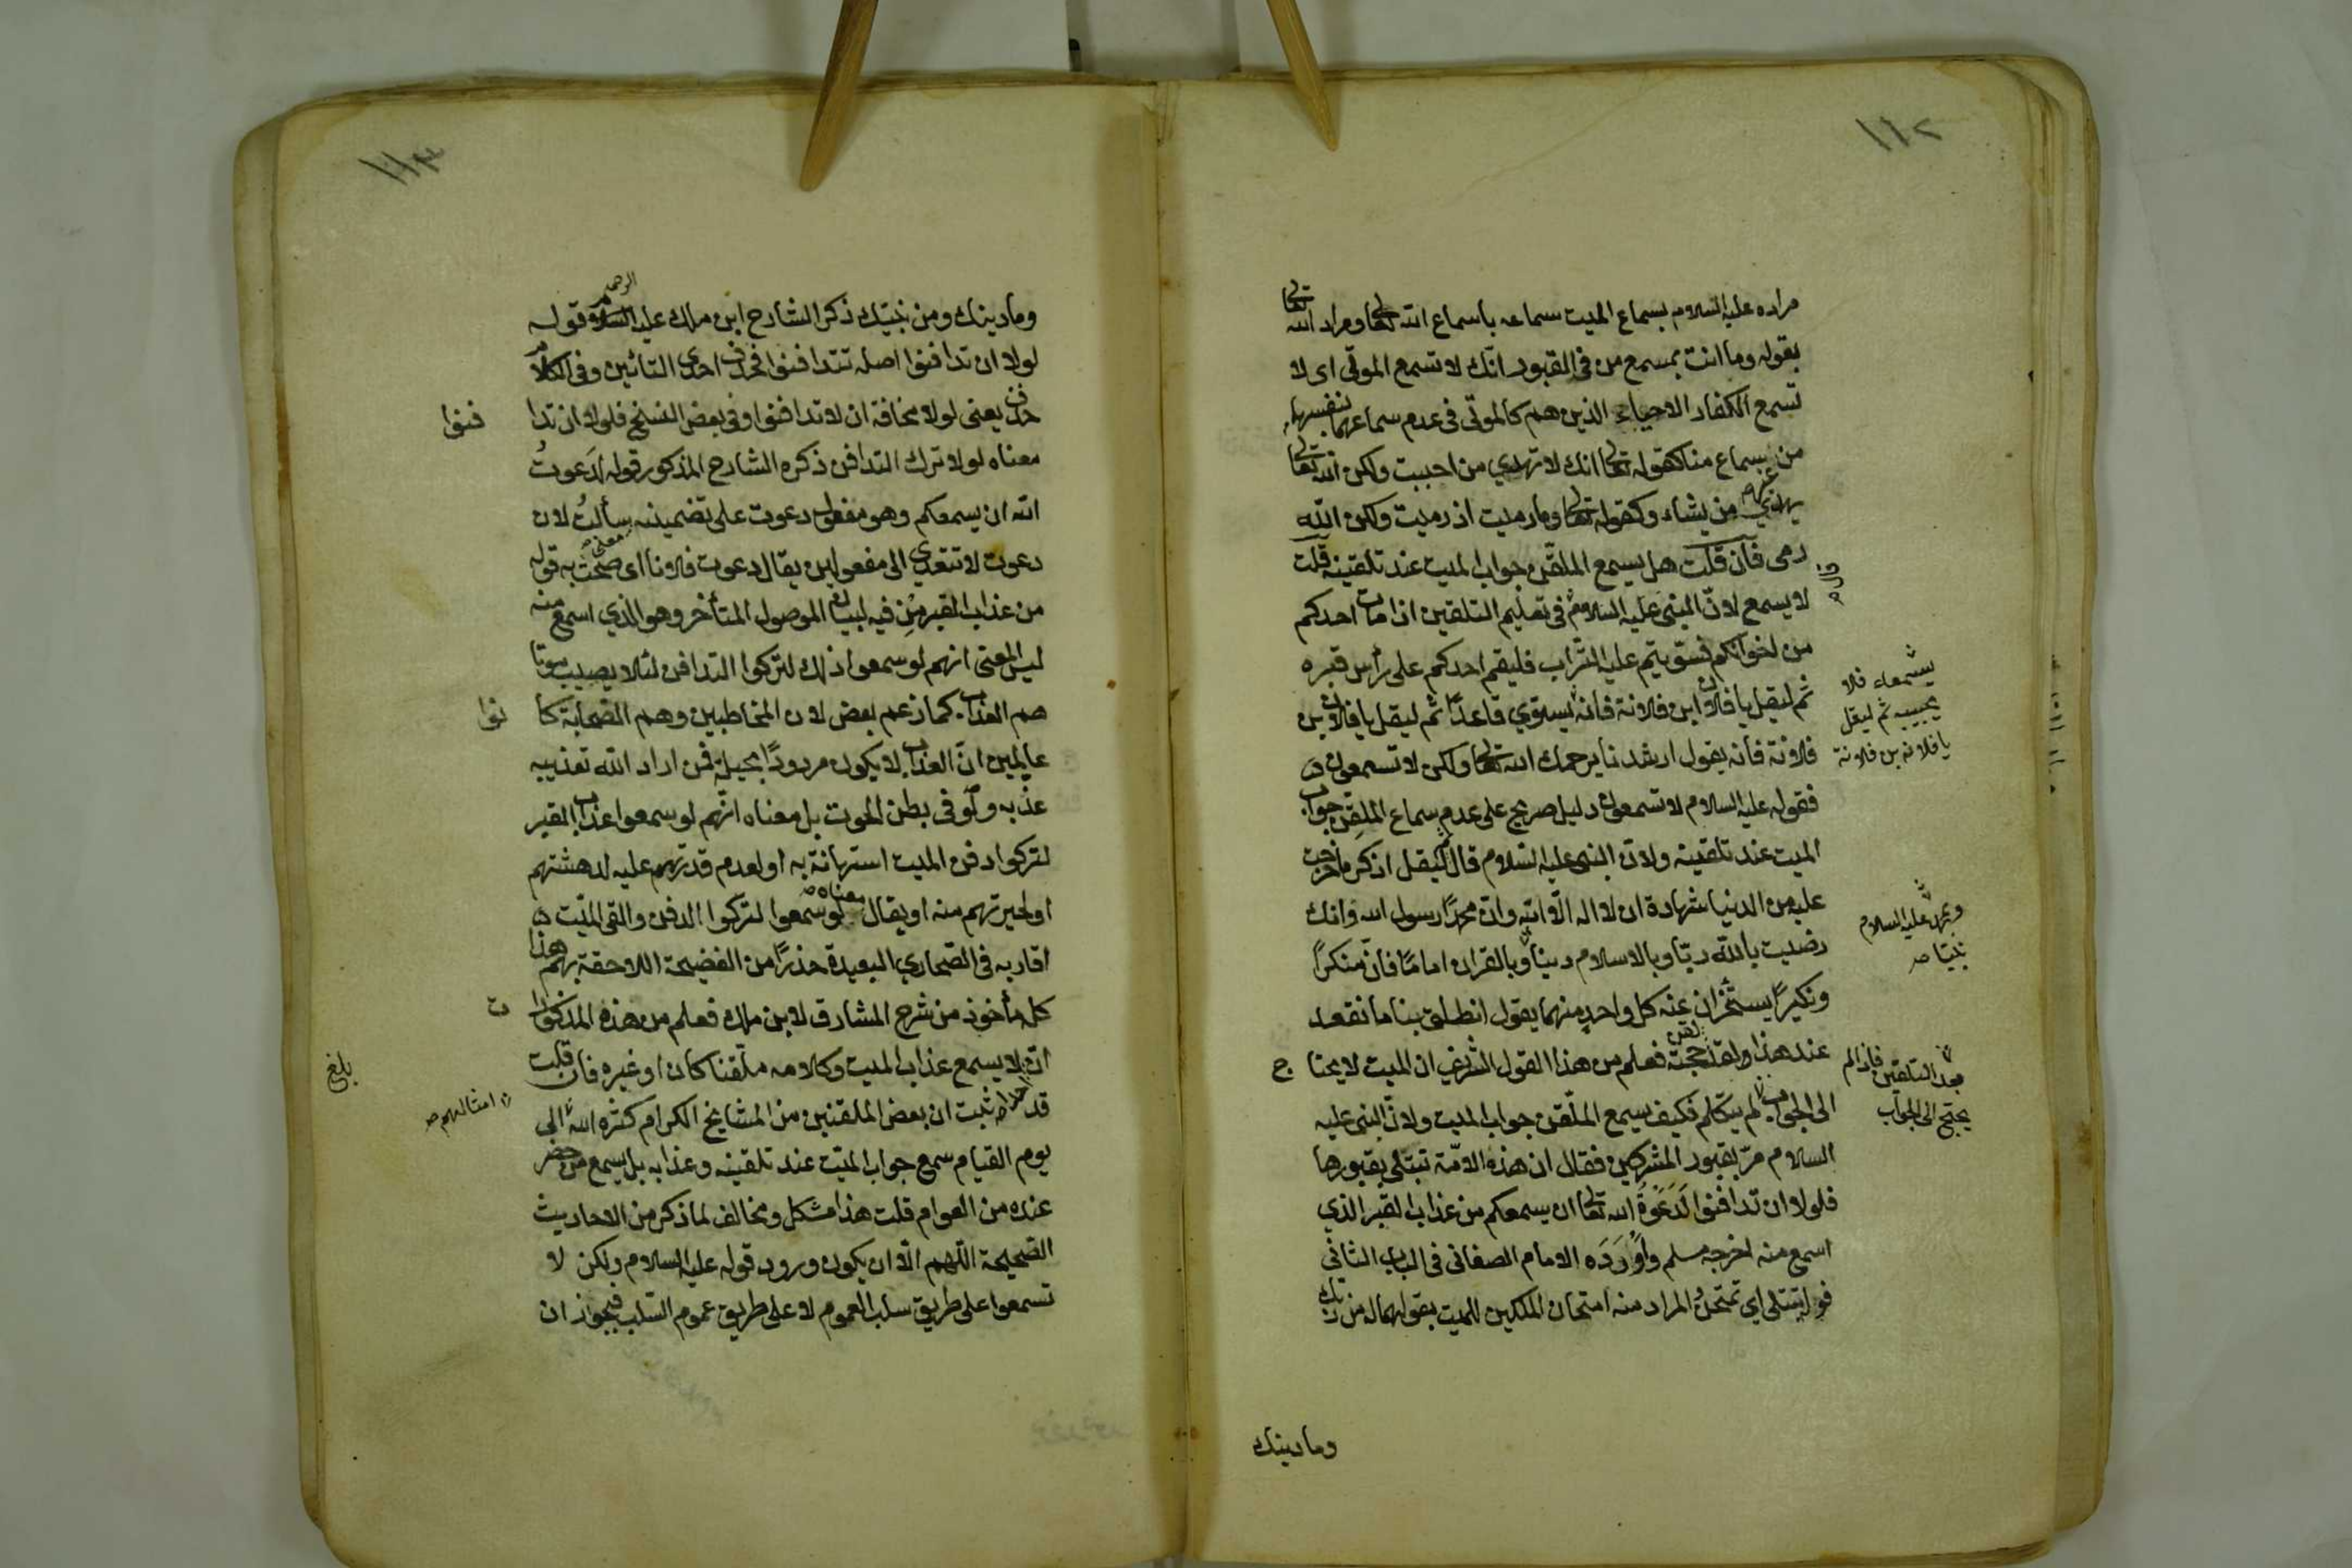 ١١٢
مراده عليه السلام بسماع الميت سماعه باسماع الله تعالى ومراد الله تعالى
بقوله وما انت بمسمع من في القبور انّك لا تسمع الموتى اى لا
تسمع الكفار الاحياء الذين هم كالموتى فى عدم سماعهما بنفسها
من سماع منا كقوله تعالى انك لا تهدي من احببت ولكن الله تعالى
يهدي من يشاء وكقوله تعالى وما رميت اذ رميت ولكن الله
رمى فان قلت هل يسمع الملقّن جواب الميت عند تلقينه قلت
لا يسمع لانّ النبى عليه السلام فى تعليم التلقين اذا مات احدكم
من اخوانكم فسوّيتم عليه التّراب فليقم احدكم على رأس قبره
ثم ليقل يا فلان ابن فلانة فانه يستوي قاعدًا ثم ليقل يا فلان بن
فلانة فانه يقول ارشدنا يرحمك الله تعالى ولكن لا تسمعون
فقوله عليه السلام لا تسمعون دليل صريح على عدم سماع الملقِّن جواب
الميت عند تلقينه ولانّ النبى عليه السلام قال ليقل اذكر ما خرجت
عليه من الدنيا شهادة ان لا اله الّا الله وانّ محمدًا رسول الله وانك
رضيت بالله ربّا وبالاسلام دينًا وبالقران امامًا فانّ منكرًا
ونكيرًا يستأخران عنه كل واحد منهما يقول انطلق بنا ما نقعد
عند هذا ولقد لقن حجته فعلم من هذا القول الشريف ان الميت لا يحتا ج
الى الجواب لم يتكلم فكيف يسمع الملّقن جواب الميت ولانّ النبى عليه
السلام مرّ بقبور المشركين فقال ان هذه الامّة تبتلى بقبورها
فلولا ان تدافنوا لَدَعَوْةُ الله تعالى ان يسمعكم من عذاب القبر الذي
اسمع منه اخرجه مسلم واَوْرَدَه الامام الصغانى فى الباب الثانى
قوله تبتلى اي تمتحنُ المراد منه امتحان الملكين للميت بقولهما له من ربّك
يسمعاء فلا
يجيب ثم ليقل
يا فلانة بن فلانة
وبمحمد عليه السلام
نبيّا صح
بعد التلقين فاذا لم
يحتج الى الجواب
وما دينك
١١٣
وما دينك ومن نبيّك ذكر الشارح ابن ملك عليه الرحمه قوله
لولا ان تدافنوا اصله تتدافنوا فحذف احدى التائين وفى الكلام
حذف يعنى لولا مخافة ان لا تدافنوا وفى بعض النسخ فلولا ان تدا فنوا
معناه لولا ترك التدافن ذكره الشارح المذكور قوله لدَعوتُ
الله ان يسمعكم وهو مفعول دعوت على تضمينه سألتُ لان
دعوت لا تتعدي الى مفعولين يقال دعوت فلانا اى صحتُ به قوله
من عذاب القبر مِن فيه لبيان الموصول المتأخر وهو الذي اسمع منه
ليس المعنى انهم لو سمعوا ذلك لتركوا التدافن لئلا يصيب موتا
هم العذاب كما زعم بعض لان المخاطبين وهم الصحابة كا نوا
عالِمين انّ العذاب لا يكون مردودًا بحيلة فمن اراد الله تعذيبه
عذّبه ولو فى بطن الحوت بل معناه انّهم لو سمعوا عذاب القبر
لتركوا دفن الميت استهانة به او لعدم قدرتهم عليه لدهشتهم
او لحيرتهم منه او يقال معناه لو سمعوا لتركوا الدفن والقى الميّت
اقاربه فى الصحاري البعيدة حذرًا من الفضيحة اللاحقة بهم هذا
كل مأخوذ من شرح المشارق لابن ملك فعلم من هذه المذكورا ت
انّ لا يسمع عذاب الميت وكلامه ملّقنا كان او غيره فان قلت
قد ثبت ان بعض الملقنين من المشايخ الكرام كثّره الله الى
يوم القيام سمع جواب الميّت عند تلقينه وعذابه بل يسمع من حضر
عنده من العوام قلت هذا مشكل ومخالف لما ذكر من الاحاديث
الصحيحة اللّهم الّا ان يكون ورود قوله عليه السلام ولكن لا
تسمعوا على طريق سلب العموم لا على طريق عموم السّلب فيجوز ان
بلغ
امثالهم صح